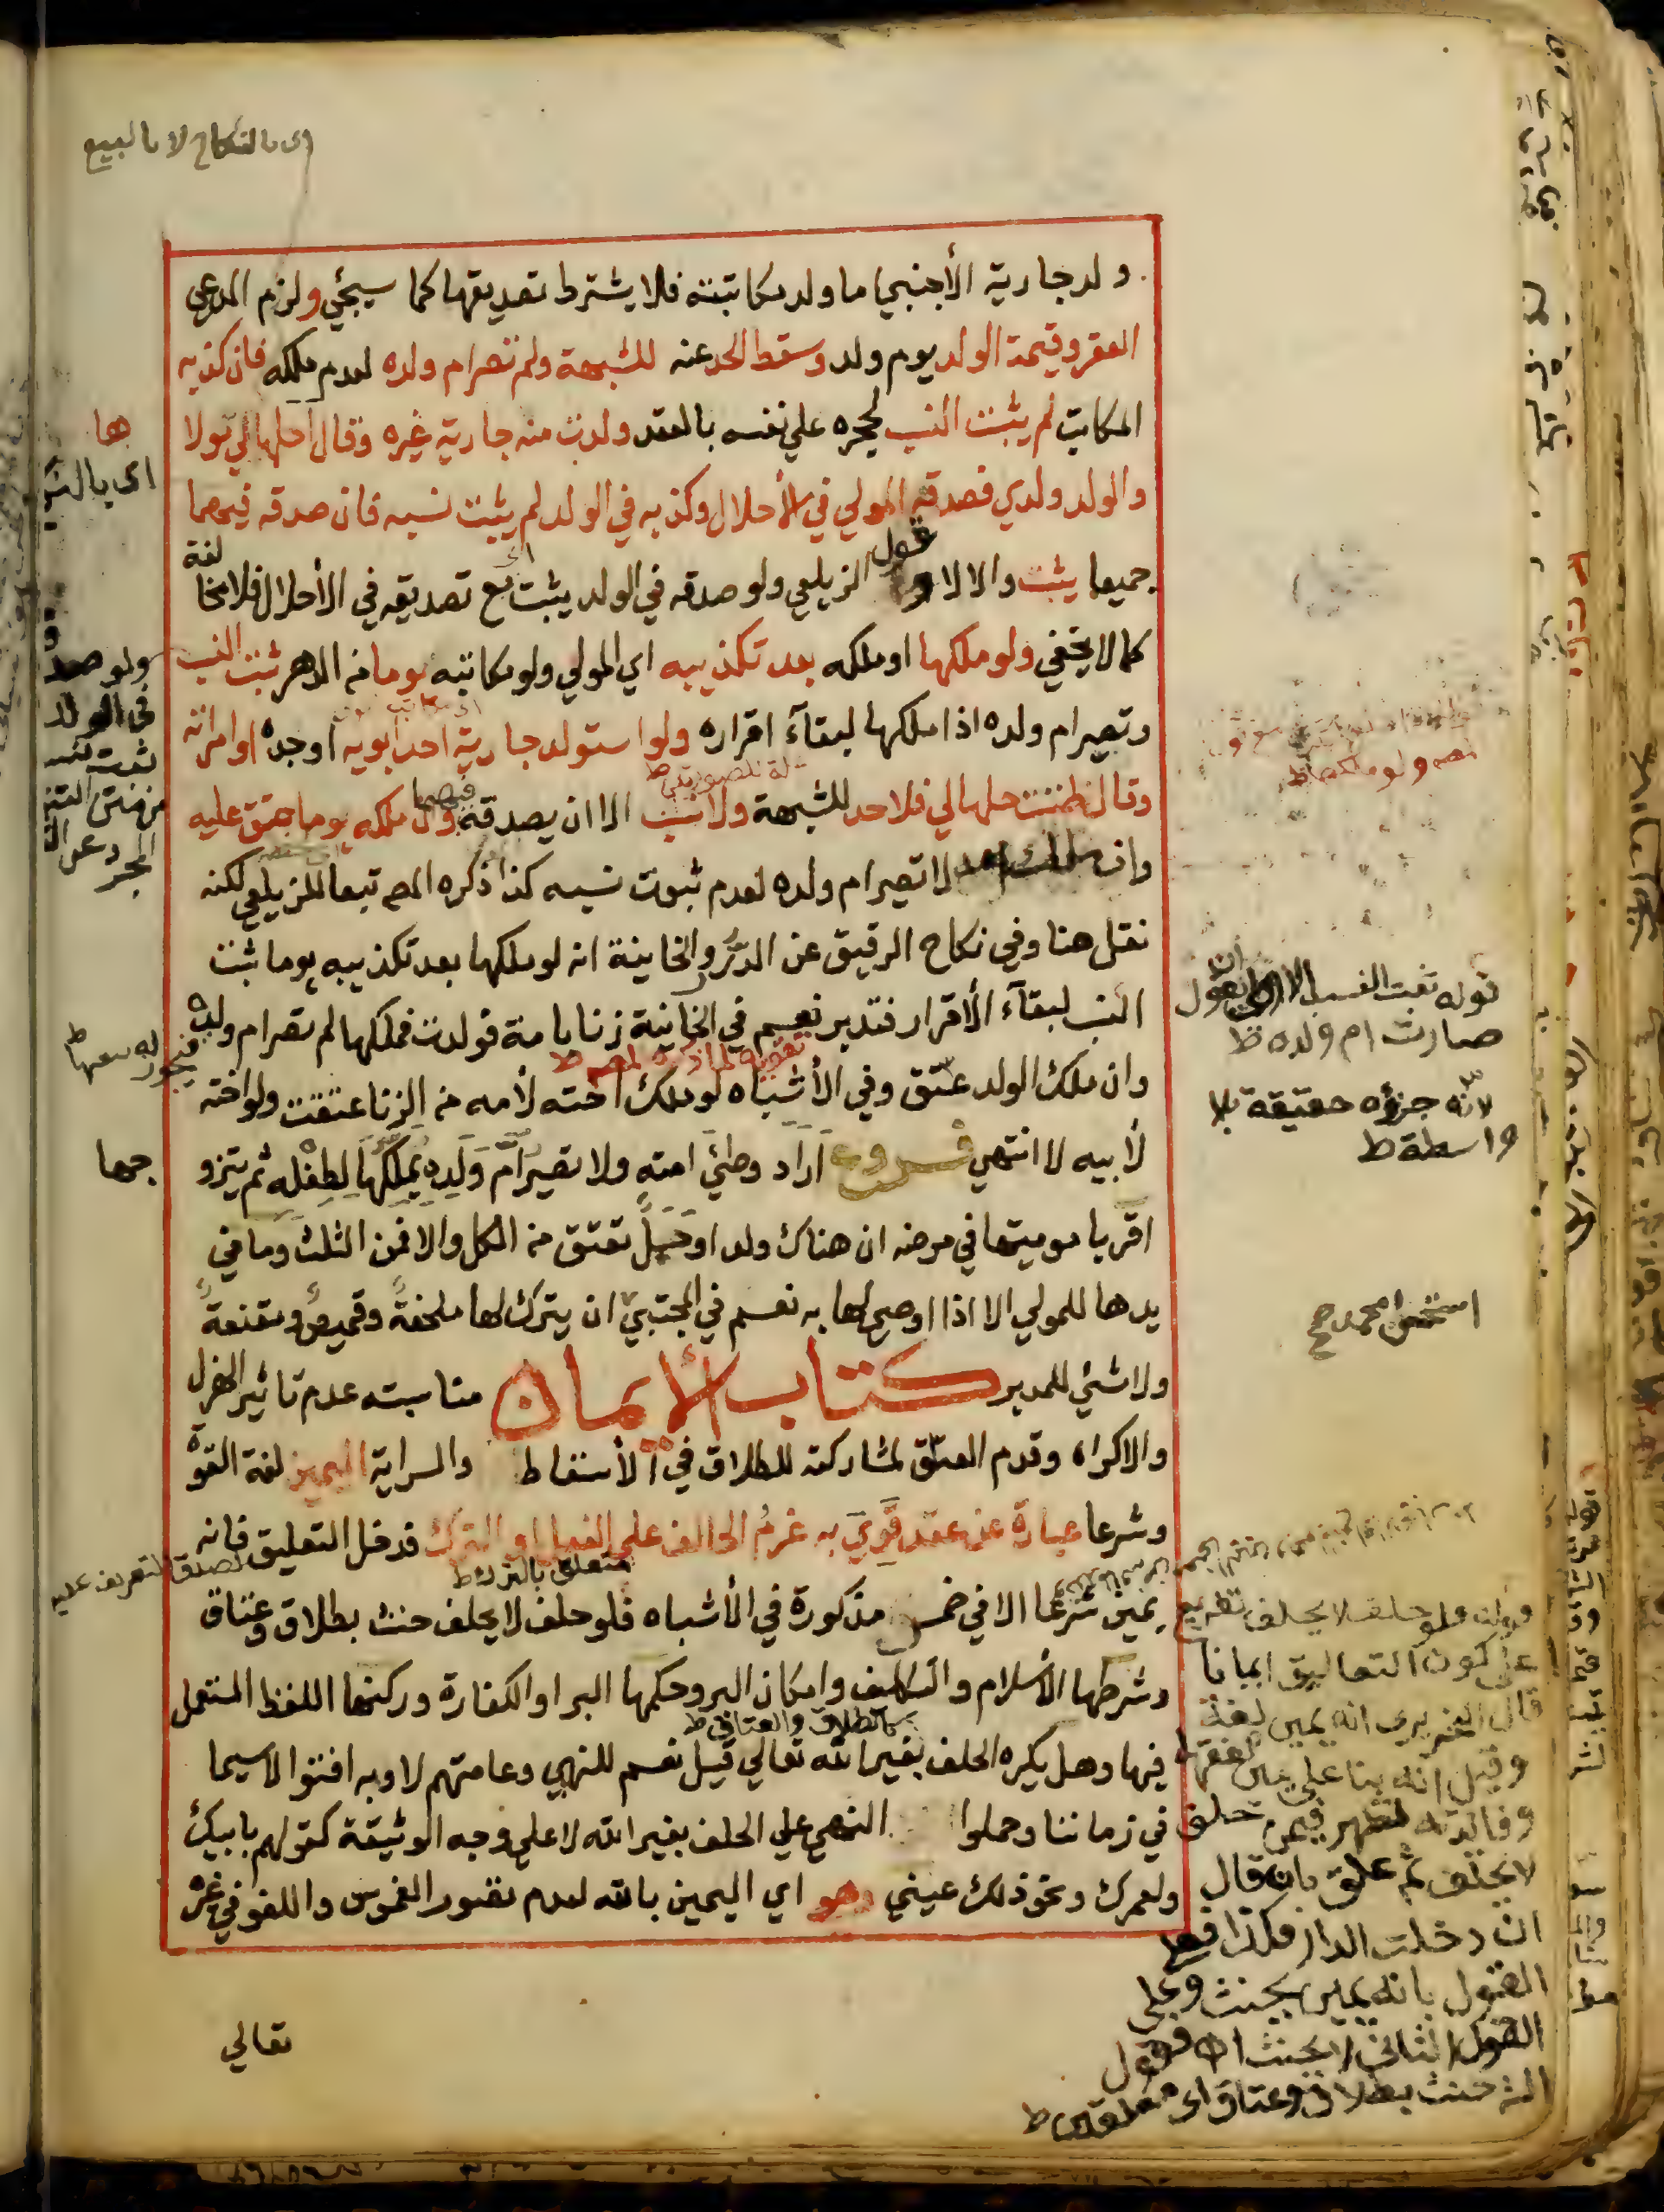 اى بالنكاح لا بالبيع
ولد جارية الأجنبي اما ولد مكاتبته فلا يشترط تصديقها كما سيجئ ولزم المدعى
العقر وقيمة الولد يوم ولد وسقط الحد عنه للشبهة ولم تصر ام ولده لعدم ملكه فان كذبه
المكاتب لم يثبت النسب لحجره علي نفسه بالعقد ولدت منه جارية غيره وقال احلها لي مولا
ها
والولد ولدي فصدقه المولي في الأحلال وكذبه في الولد لم يثبت نسبه فان صدقه فيهما
جميعا يثبت والا لا قول الزيلعي ولو صدقه في الولد يثبت اى مع تصديقه في الأحلال فلا مخا
لفة
كما لا يخفي ولو ملكها او ملكه بعد تكذيبه اي المولي ولو مكاتبته يوما من الدهر ثبت النسب
وتصير ام ولده اذا ملكها لبقآء اقراره ولو استولد جارية احد ابويه او جده او امرأته
وقال ظننت حلها لي فلا حد للشبهة ولا نسب الا ان يصدقه فيهما وان ملكه يوما عتق عليه
وان لا تصير ام ولده لعدم ثبوت نسبه كذا ذكره المص تبعا للزيلعي لكنه
نقل هنا وفي نكاح الرقيق عن الدرر والخانية انه لو ملكها بعد تكذيبه يوما ثبت
النسب لبقآء الأقرار فتدبر نعم في الخانية زنا بامة فولدت فملكها لم تصر ام ولده
وان ملك الولد عتق وفي الأشباه لو ملك اخته لأمه من الزنا عتقت ولو اخته
لأبيه لا انتهي فروع اراد وطئ امته ولا تصير ام ولده يملكها لطفله ثم يتزو
جها
اقر بامومتها في مرضه ان هناك ولد او حبل تعتق من الكل والا فمن الثلث وما في
يدها للمولي الا اذا اوصي لها به نعم في المجتبي ان يترك لها ملحفة وقميص ومقنعة
ولا شئ للمدبر كتاب الأيمان مناسبته عدم تاثير الهزل
والاكراه وقدم العتق لمشاركته للطلاق في الأسقاط والسراية اليمين لغة القوة
وشرعا عبارة عن عقد قوي به عزم الحالف علي الفعل او الترك فدخل التعليق فانه
يمين شرعا الا في خمس مذكورة في الأشباه فلو حلف لا يحلف حنث بطلاق وعتاق
وشرطها الأسلام والتكليف وامكان البر وحكمها البر او الكفارة وركنها اللفظ المستعمل
فيها وهل يكره الحلف بغير الله تعالي قيل نعم للنهي وعامتهم لا وبه افتوا لاسيما
في زماننا وحملوا النهي علي الحلف بغير الله لا علي وجه الوثيقة كقولهم بابيك
ولعمرك ونحو ذلك عيني وهو اي اليمين بالله لعدم تصور الغموس واللغو في غيره
تعالي
قوله ثبت النسب الاولى ان يقول
صارت ام ولده ط
لانه جزؤه حقيقة بلا
واسطة ط
فيجوز له بيعها ط
تقوية لما ذكره المص ط
متعلق بالترك ط
كالطلاق والعتاق ط
قوله فلو حلف لا يحلف تفريع
على كون التعاليق ايمانا
وفائدته تظهر فيمن حلف
لا يحلف ثم علق بان قال
ان دخلت الدار فكذا فعلى
القول بانه يمين يحنث وعلى
القول الثاني لا يحنث
حنث بطلاق وعتاق اى معلقين ط